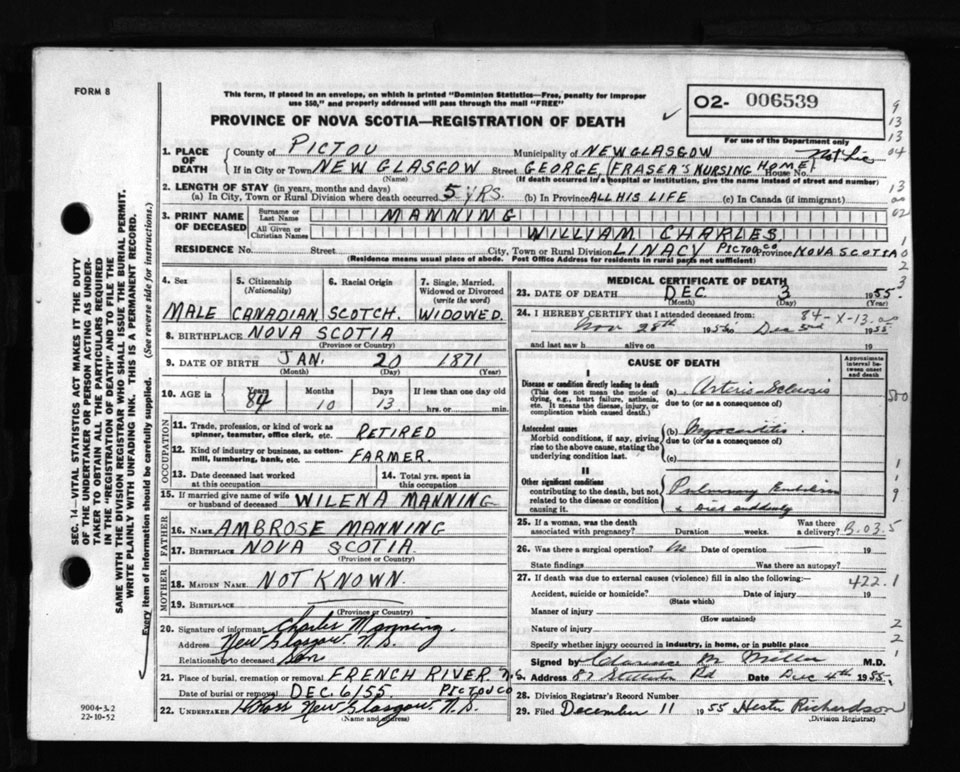 FORM 8
This form, if placed in an envelope, on which is printed "Dominion Statistics—Free, penalty for improper
use $50," and properly addressed will pass through the mail "FREE"
PROVINCE OF NOVA SCOTIA—REGISTRATION OF DEATH
02- 006539
For use of the Department
9
13
13
04
13
02
1. PLACE OF DEATH
County of PICTOU Municipality of NEW GLASGOW
If in City or Town NEW GLASGOW Street GEORGE (FRASER'S NURSING HOME) House No.
(Name) (If death occurred in a hospital or institution, give the name instead of street and number)
2. LENGTH OF STAY (in years, months and days)
(a) In City, Town or Rural Division where death occurred 5 YRS. (b) In Province ALL HIS LIFE (c) In Canada (if immigrant)
3. PRINT NAME OF DECEASED
Surname or Last Name MANNING
All Given or Christian Names WILLIAM CHARLES
RESIDENCE No. Street City, Town or Rural Division LINACY PICTOU CO Province NOVA SCOTIA
(Residence means usual place of abode. Post Office Address for residents in rural parts not sufficient)
4. Sex MALE
5. Citizenship (Nationality) CANADIAN
6. Racial Origin SCOTCH.
7. Single, Married, Widowed or Divorced (write the word) WIDOWED.
8. BIRTHPLACE NOVA SCOTIA
(Province or Country)
9. DATE OF BIRTH JAN. 20 1871
(Month) (Day) (Year)
10. AGE in Years 84 Months 10 Days 13 If less than one day old hrs. or min.
OCCUPATION
11. Trade, profession, or kind of work as spinner, teamster, office clerk, etc. RETIRED
12. Kind of industry or business, as cotton-mill, lumbering, bank, etc. FARMER.
13. Date deceased last worked at this occupation
14. Total yrs. spent in this occupation
15. If married give name of wife or husband of deceased WILENA MANNING
FATHER
16. NAME AMBROSE MANNING
17. BIRTHPLACE NOVA SCOTIA.
(Province or Country)
MOTHER
18. MAIDEN NAME NOT KNOWN.
19. BIRTHPLACE
(Province or Country)
20. Signature of informant Charles Manning.
Address New Glasgow. N.S.
Relationship to deceased Son
21. Place of burial, cremation or removal FRENCH RIVER N.S.
Date of burial or removal DEC. 6/55. PICTOU CO
22. UNDERTAKER H Ross New Glasgow. N.S.
(Name and address)
MEDICAL CERTIFICATE OF DEATH
23. DATE OF DEATH DEC. 3 1955.
(Month) (Day) (Year)
84-X-13.
24. I HEREBY CERTIFY that I attended deceased from:
Nov 28th 1955 to Dec 1955
and last saw h alive on 19
CAUSE OF DEATH
Approximate interval between onset and death
I
Disease or condition directly leading to death
(This does not mean the mode of dying, e.g., heart failure, asthenia, etc. It means the disease, injury, or complication which caused death.)
(a) Arterio Sclerosis
due to (or as a consequence of)
Antecedent causes
Morbid conditions, if any, giving rise to the above cause, stating the underlying condition last.
(b) Myocarditis
due to (or as a consequence of)
(c)
II
Other significant conditions
contributing to the death, but not related to the disease or condition causing it.
Pulmonary Embolism
& Died suddenly
25. If a woman, was the death associated with pregnancy? Duration weeks. Was there a delivery?
B.03.5
26. Was there a surgical operation? No Date of operation 19
State findings Was there an autopsy?
27. If death was due to external causes (violence) fill in also the following:—
422.1
Accident, suicide or homicide? Date of injury 19
(State which)
Manner of injury
(How sustained)
Nature of injury
Specify whether injury occurred in industry, in home, or in public place
Signed by Clarence M Miller M.D.
Address 87 Stellarton Rd Date Dec 4th 1955.
28. Division Registrar's Record Number
29. Filed December 11 1955 Hester Richardson
(Division Registrar)
SEC. 14—VITAL STATISTICS ACT MAKES IT THE DUTY
OF THE UNDERTAKER OR PERSON ACTING AS UNDER-
TAKER TO OBTAIN ALL THE PARTICULARS REQUIRED
IN THE "REGISTRATION OF DEATH" AND TO FILE THE
SAME WITH THE DIVISION REGISTRAR WHO SHALL ISSUE THE BURIAL PERMIT.
WRITE PLAINLY WITH UNFADING INK. THIS IS A PERMANENT RECORD.
Every item of information should be carefully supplied. (See reverse side for instructions.)
9004-3.2
22-10-52